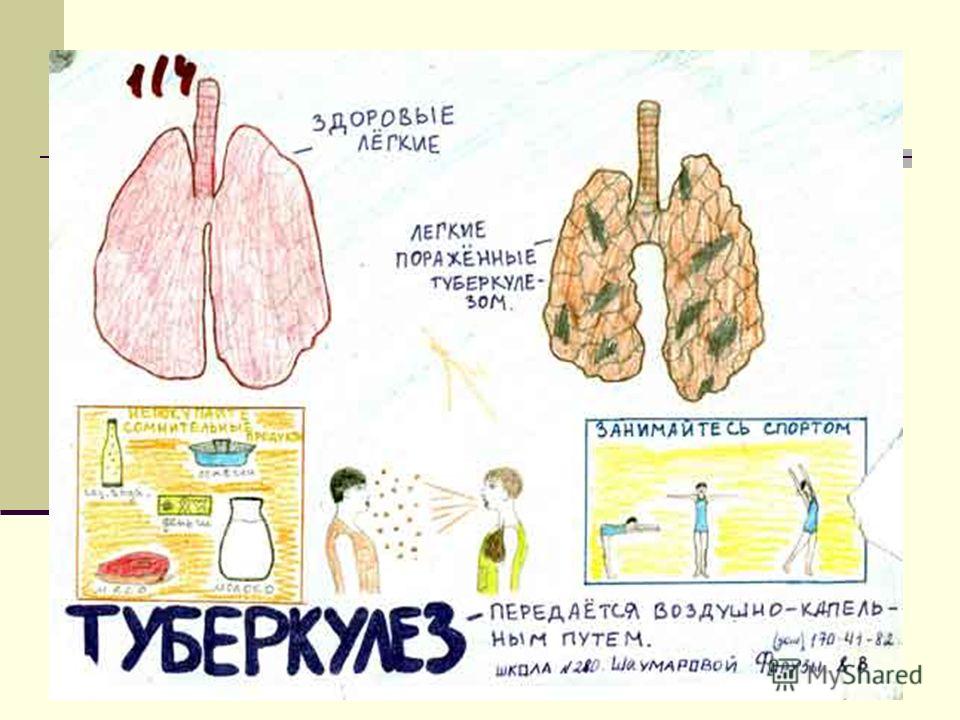 1/4
ЗДОРОВЫЕ
ЛЁГКИЕ
ЛЕГКИЕ
ПОРАЖЁННЫЕ
ТУБЕРКУЛЕ-
ЗОМ.
НЕПОКУПАЙТЕ
СОМНИТЕЛЬНЫЕ
ПРОДУКТЫ
газ. вода.
деньги
мясо
молоко
ЗАНИМАЙТЕСЬ СПОРТОМ
ТУБЕРКУЛЕЗ
- ПЕРЕДАЁТСЯ ВОЗДУШНО-КАПЕЛЬ-
НЫМ ПУТЕМ.
(дом) 170-41-82
ШКОЛА N280. ШАУМАРОВОЙ
MyShared